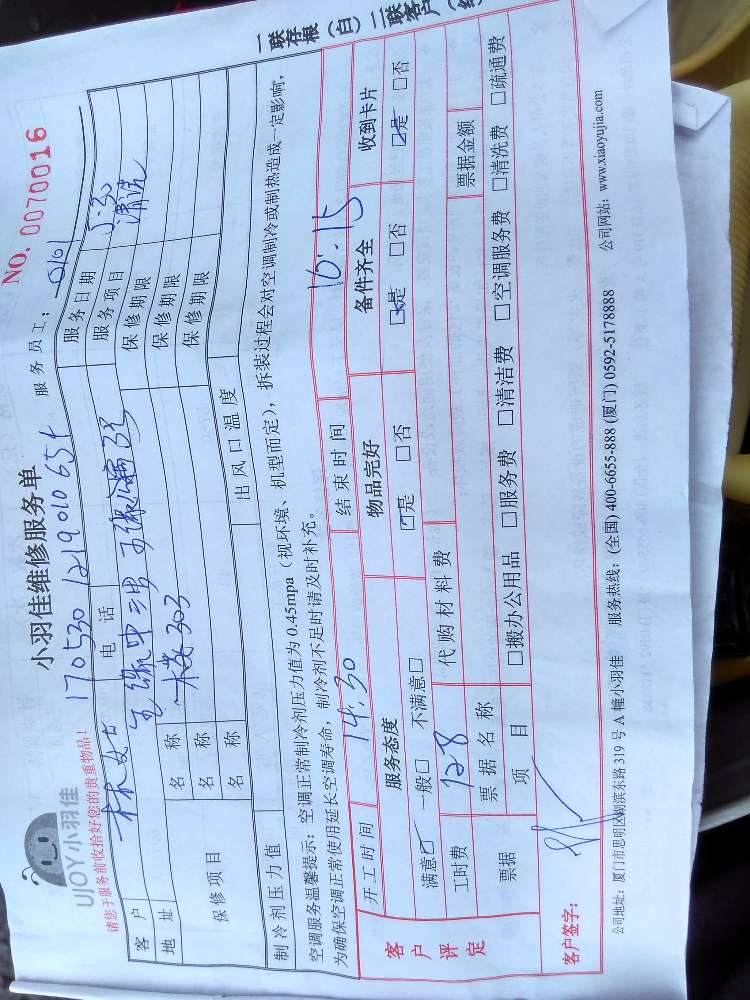 一联存根（白）二联客户
UJOY小羽佳
小羽佳维修服务单
NO. 0070016
请您于服务前收拾好您的贵重物品！
170530 1219010651
服务员工：
客户 林女士 电话 服务日期 5.30
地址 服务项目 清洗
保修项目 名称 303 保修期限
名称 保修期限
名称 保修期限
制冷剂压力值 出风口温度
空调服务温馨提示：空调正常制冷剂压力值为0.45mpa（视环境、机型而定），拆装过程会对空调制冷或制热造成一定影响，
为确保空调正常使用延长空调寿命，制冷剂不足时请及时补充。
开工时间 14:30 结束时间 16:15
客户评定 服务态度 物品完好 备件齐全 收到卡片
满意☑ 一般□ 不满意□ ☑是 □否 ☑是 □否 ☑是 □否
工时费 128 代购材料费
票据 票据名称 票据金额
项目 □搬办公用品 □服务费 □清洁费 □空调服务费 □清洗费 □疏通费
客户签字：
公司地址：厦门市思明区湖滨东路319号A幢小羽佳 服务热线：(全国) 400-6655-888 (厦门) 0592-5178888 公司网站：www.xiaoyujia.com